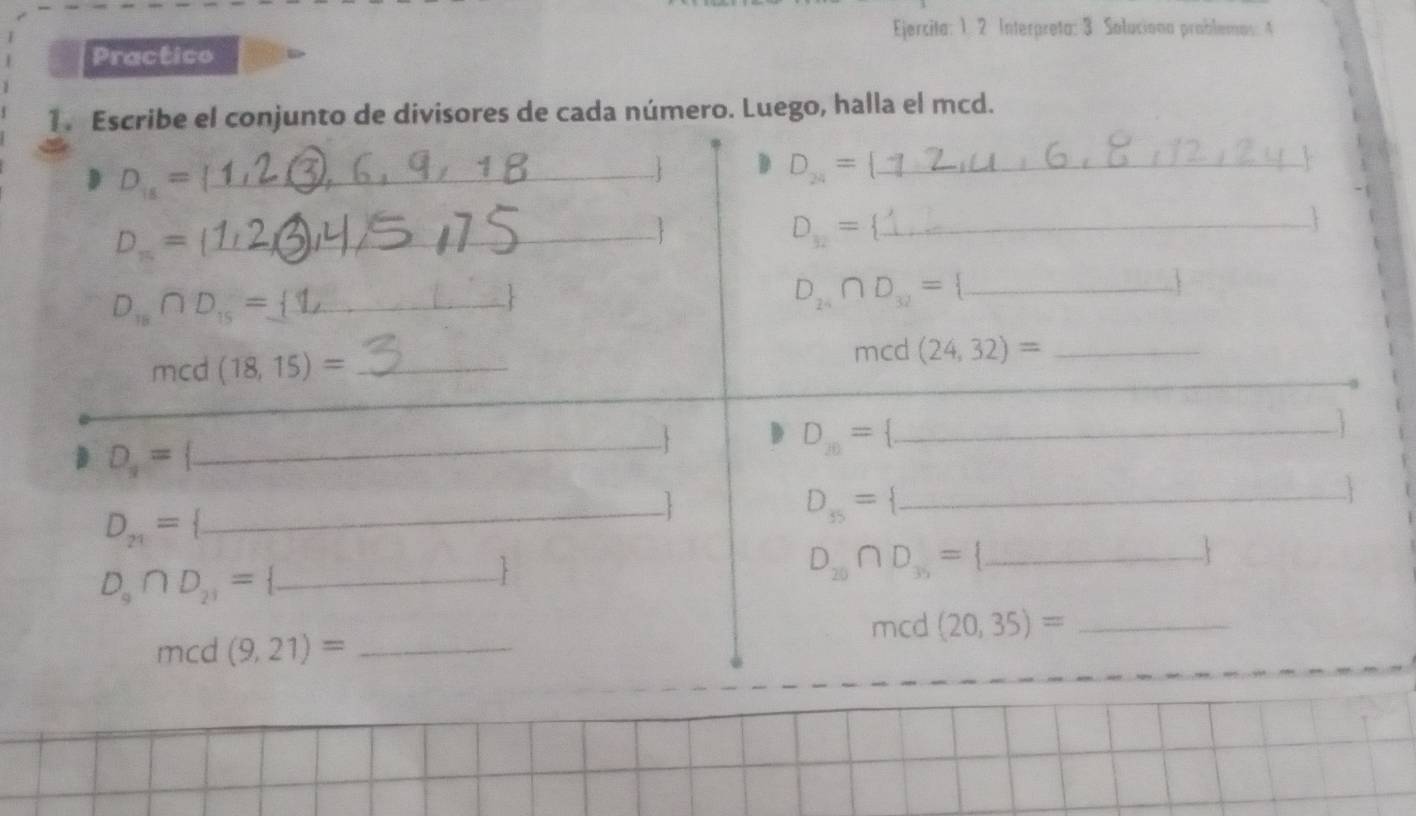 Ejercita: 1 2 Interpreta: 3 Soluciona problemas: 4
Practico
1. Escribe el conjunto de divisores de cada número. Luego, halla el mcd.
D₁₈ = {1,2,3,6,9,18}
D₁₅ = {1,2,3,4,5,15}
D₁₈ ∩ D₁₅ = {1,}
mcd (18, 15) = 3
D₂₄ = {1 2,4,6,8,12,24}
D₃₂ = {1,}
D₂₄ ∩ D₃₂ = {}
mcd (24, 32) =
D₉ = {}
D₂₁ = {}
D₉ ∩ D₂₁ = {}
mcd (9, 21) =
D₂₀ = {}
D₃₅ = {}
D₂₀ ∩ D₃₅ = {}
mcd (20, 35) =